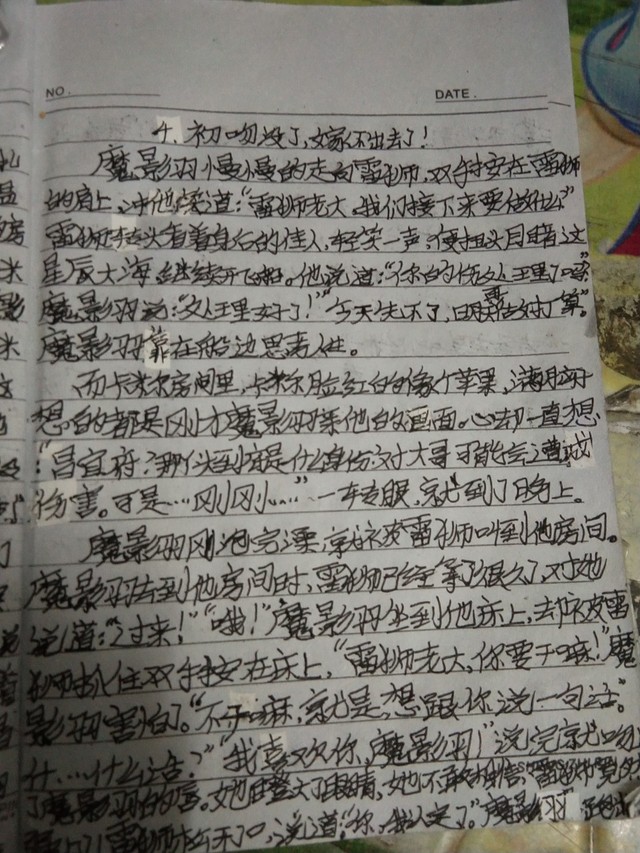 NO.
DATE.
4. 初吻没了,嫁不出去了!
魔影羽慢慢的走向雷狮,双手按在雷狮
的肩上,冲他说道:“雷狮老大,我们接下来要做什么”
雷狮转头看着身后的佳人,轻笑一声,便扭头目睹这
星辰大海,继续开飞船。他说道:“你的伤处理了吗”
魔影羽说:“处理好了!”今天先不了,明天再做打算。
魔影羽靠在船边思考人生。
而卡米尔房间里,卡米尔脸红的像个苹果,满脑子
想的都是刚才魔影羽亲他的画面。心却一直想
:“昌宜府?那丫头到底是什么身份?对大哥可能会造成
伤害。可是…刚刚…”一转眼,就到了晚上。
魔影羽刚泡完澡,就被雷狮叫到他房间。
魔影羽去到他房间时,雷狮已经等了很久了,对她
说道:“过来!”“哦!”魔影羽坐到他床上,却被雷
狮抓住双手按在床上,“雷狮老大,你要干嘛!”魔
影羽害怕了。“不干嘛,就是想跟你说一句话。”
什……什么话?”“我喜欢你,魔影羽!”说完就吻
了魔影羽的唇。她瞪大了眼睛,她不敢相信,雷狮
雷狮松开了口,说道:“你,我认定了。”魔影羽